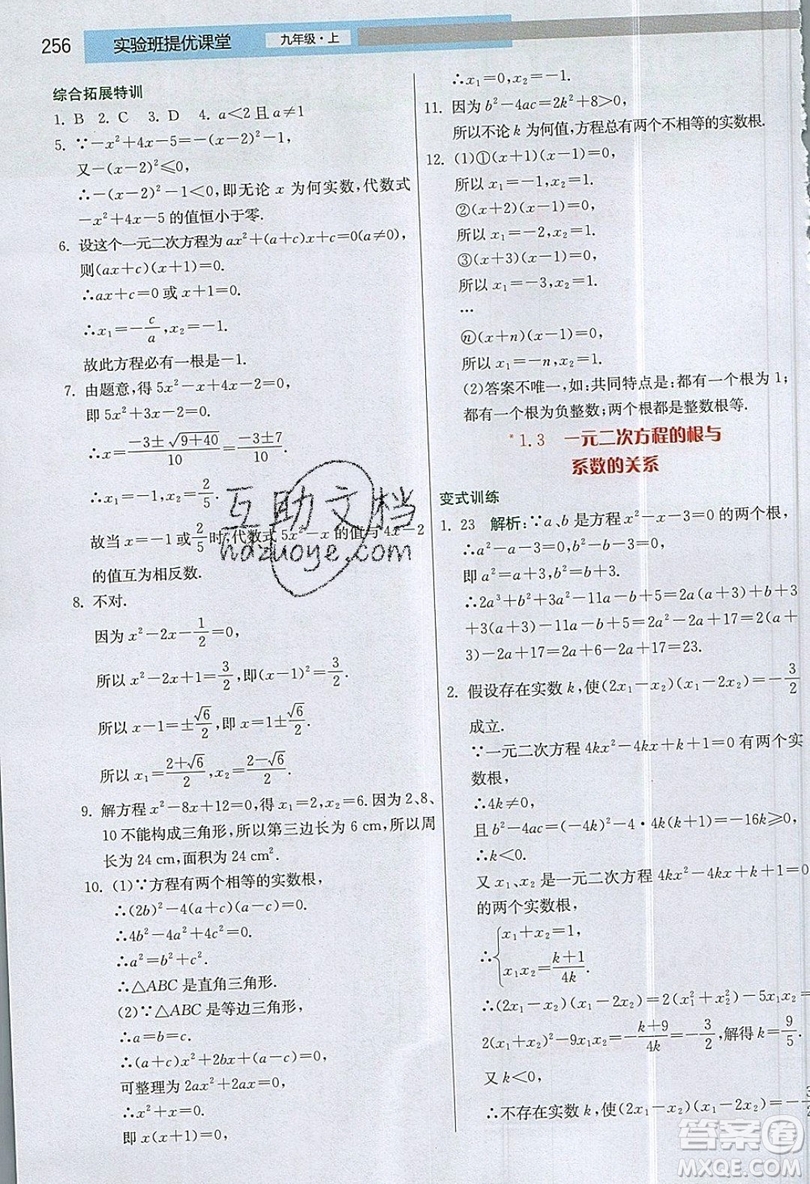 256 实验班提优课堂 九年级·上
综合拓展特训
1. B 2. C 3. D 4. a<2 且 a≠1
5. ∵-x²+4x-5=-(x-2)²-1,
又-(x-2)²≤0,
∴-(x-2)²-1<0,即无论 x 为何实数,代数式
-x²+4x-5 的值恒小于零.
6. 设这个一元二次方程为 ax²+(a+c)x+c=0(a≠0),
则(ax+c)(x+1)=0.
∴ax+c=0 或 x+1=0.
∴x₁=-c/a,x₂=-1.
故此方程必有一根是-1.
7. 由题意,得 5x²-x+4x-2=0,
即 5x²+3x-2=0.
∴x=(-3±√(9+40))/10=(-3±7)/10.
∴x₁=-1,x₂=2/5.
故当 x=-1 或 2/5 时,代数式 5x²-x 的值与 4x-2
的值互为相反数.
8. 不对.
因为 x²-2x-1/2=0,
所以 x²-2x+1=3/2,即(x-1)²=3/2.
所以 x-1=±√6/2,即 x=1±√6/2.
所以 x₁=(2+√6)/2,x₂=(2-√6)/2.
9. 解方程 x²-8x+12=0,得 x₁=2,x₂=6.因为 2、8、
10 不能构成三角形,所以第三边长为 6 cm,所以周
长为 24 cm,面积为 24 cm².
10. (1)∵方程有两个相等的实数根,
∴(2b)²-4(a+c)(a-c)=0.
∴4b²-4a²+4c²=0.
∴a²=b²+c².
∴△ABC 是直角三角形.
(2)∵△ABC 是等边三角形,
∴a=b=c.
∴(a+c)x²+2bx+(a-c)=0,
可整理为 2ax²+2ax=0.
∴x²+x=0,
即 x(x+1)=0,
∴x₁=0,x₂=-1.
11. 因为 b²-4ac=2k²+8>0,
所以不论 k 为何值,方程总有两个不相等的实数根.
12. (1)①(x+1)(x-1)=0,
所以 x₁=-1,x₂=1.
②(x+2)(x-1)=0,
所以 x₁=-2,x₂=1.
③(x+3)(x-1)=0,
所以 x₁=-3,x₂=1.
…
ⓝ(x+n)(x-1)=0,
所以 x₁=-n,x₂=1.
(2)答案不唯一,如:共同特点是:都有一个根为 1;
都有一个根为负整数;两个根都是整数根等.
*1.3 一元二次方程的根与
系数的关系
变式训练
1. 23 解析:∵a、b 是方程 x²-x-3=0 的两个根,
∴a²-a-3=0,b²-b-3=0,
即 a²=a+3,b²=b+3.
∴2a³+b²+3a²-11a-b+5=2a(a+3)+b
+3+3(a+3)-11a-b+5=2a²-2a+17=2(a
+3)-2a+17=6+17=23.
2. 假设存在实数 k,使(2x₁-x₂)(x₁-2x₂)=-3/2
成立.
∵一元二次方程 4kx²-4kx+k+1=0 有两个实
数根,
∴4k≠0,
且 b²-4ac=(-4k)²-4·4k(k+1)=-16k≥0,
∴k<0.
又 x₁、x₂ 是一元二次方程 4kx²-4kx+k+1=0
的两个实数根,
∴{x₁+x₂=1,
x₁x₂=(k+1)/4k.
∴(2x₁-x₂)(x₁-2x₂)=2(x₁²+x₂²)-5x₁x₂=
2(x₁+x₂)²-9x₁x₂=-(k+9)/4k=-3/2,解得 k=9/5.
又 k<0,
∴不存在实数 k,使(2x₁-x₂)(x₁-2x₂)=-3/2
互助文档
hzuoye.com
答案圈
MXQE.COM